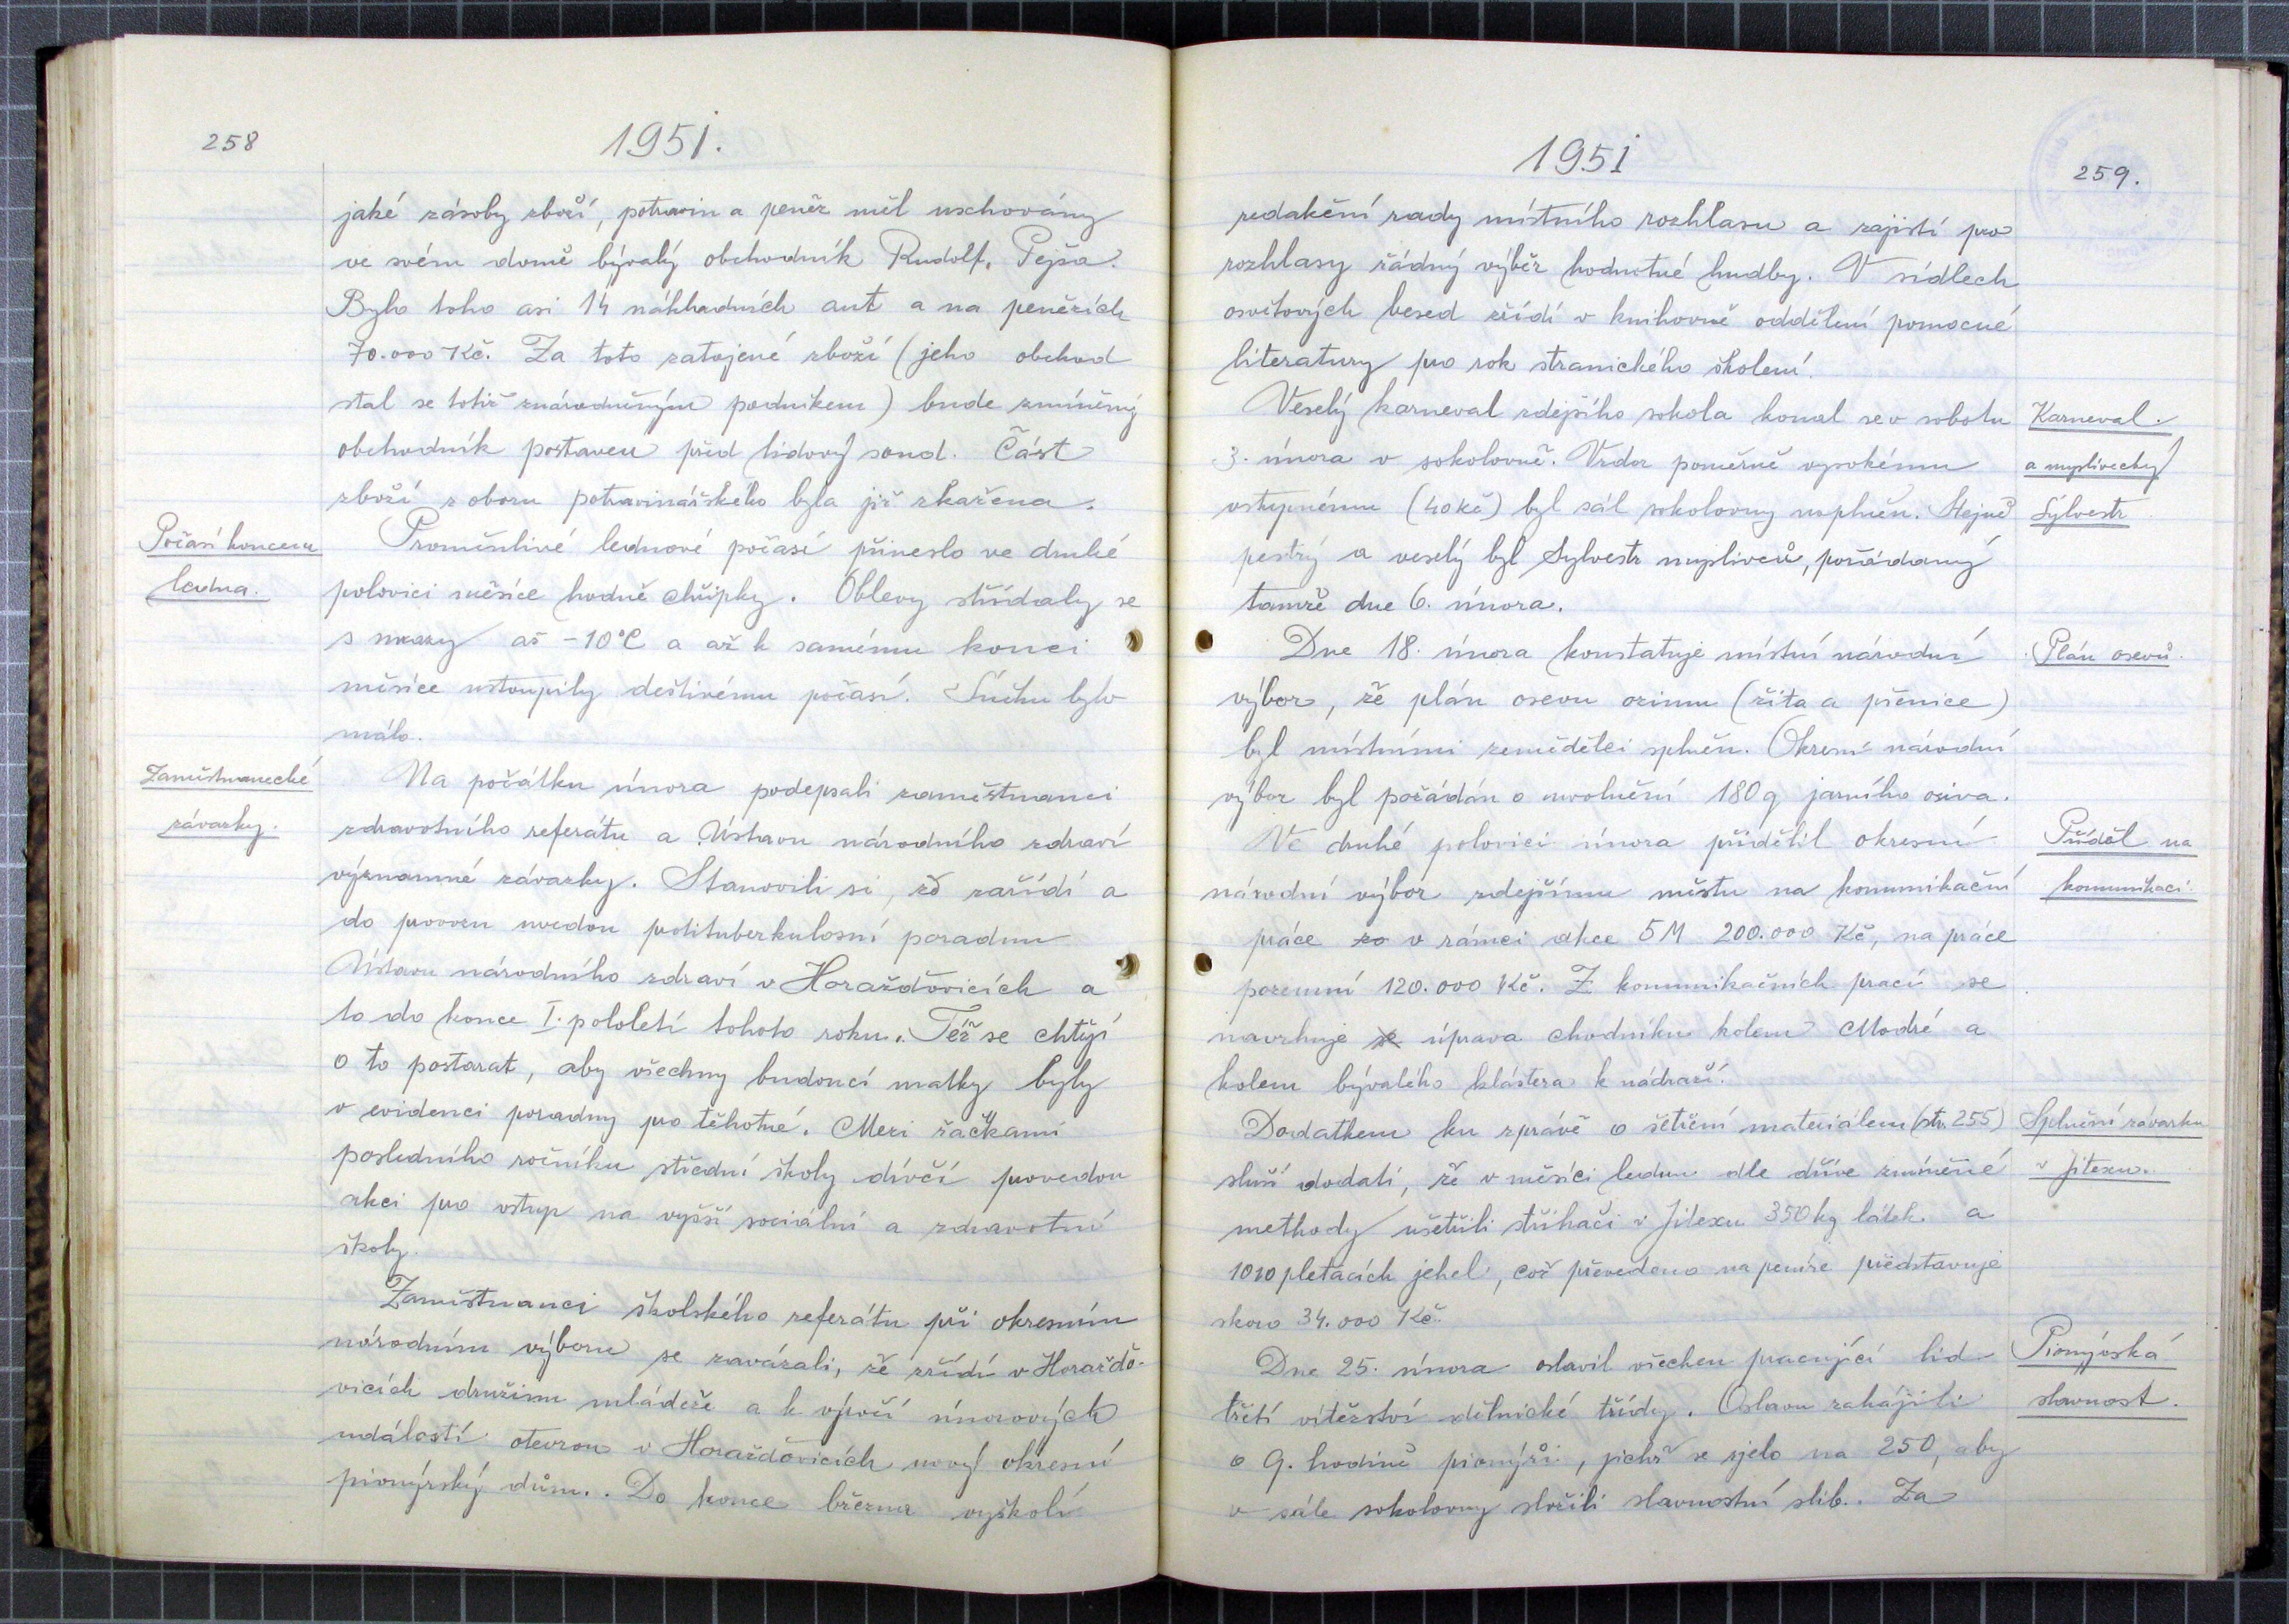 258
1951.
jaké zásoby zboží, potravin a peněz měl uschovány
ve svém domě bývalý obchodník Rudolf Pejša.
Bylo toho asi 14 nákladních aut a na penězích
70.000 Kč. Za toto zatajené zboží (jeho obchod
stal se totiž znárodněným podnikem) bude zmíněný
obchodník postaven před lidový soud. Část
zboží z oboru potravinářského byla již zkažena.
Počasí koncem
ledna.
Proměnlivé lednové počasí přineslo ve druhé
polovici měsíce hodně chřipky. Oblevy střídaly se
s mrazy až -10°C a až k samému konci
měsíce ustoupily deštivému počasí. Sněhu bylo
málo.
Zaměstnanecké
závazky.
Na počátku února podepsali zaměstnanci
zdravotního referátu a Ústavu národního zdraví
významné závazky. Stanovili si, že zařídí a
do provozu uvedou protituberkulosní poradnu
Ústavu národního zdraví v Horažďovicích a
to do konce I. pololetí tohoto roku. Též se chtějí
o to postarat, aby všechny budoucí matky byly
v evidenci poradny pro těhotné. Mezi žačkami
posledního ročníku střední školy dívčí provedou
akci pro vstup na vyšší sociální a zdravotní
školy.
Zaměstnanci školského referátu při okresním
národním výboru se zavázali, že zřídí v Horažďo-
vicích družinu mládeže a k výročí únorových
událostí otevrou v Horažďovicích nový okresní
pionýrský dům. Do konce března vyškolí
1951
259.
redakční rady místního rozhlasu a zajistí pro
rozhlasy řádný výběr hodnotné hudby. V sídlech
osvětových besed zřídí v knihovně oddělení pomocné
literatury pro rok stranického školení.
Karneval
a myslivecký
Sylvestr
Veselý karneval zdejšího sokola konal se v sobotu
3. února v sokolovně. Vzdor poměrně vysokému
vstupnému (40 Kč) byl sál sokolovny naplněn. Stejně
pestrý a veselý byl Sylvestr myslivců, pořádaný
tamže dne 6. února.
Plán osevů.
Dne 18. února konstatuje místní národní
výbor, že plán osevu ozimu (žita a pšenice)
byl místními zemědělci splněn. Okresní národní
výbor byl požádán o uvolnění 180 q jarního osiva.
Příděl na
komunikaci.
Ve druhé polovici února přidělil okresní
národní výbor zdejšímu městu na komunikační
práce za v rámci akce 5M 200.000 Kč, na práce
pozemní 120.000 Kč. Z komunikačních prací se
navrhuje se úprava chodníku kolem Modré a
kolem bývalého kláštera k nádraží.
Splnění závazku
v Jitexu.
Dodatkem ku zprávě o šetření materiálem (str. 255)
sluší dodati, že v měsíci lednu dle dříve zmíněné
methody ušetřili střihači v Jitexu 350 kg látek a
1010 pletacích jehel, což převedeno na peníze představuje
skoro 34.000 Kč.
Pionýrská
slavnost.
Dne 25. února oslavil všechen pracující lid
třetí vítězství dělnické třídy. Oslavu zahájili
o 9. hodině pionýři, jichž se sjelo na 250, aby
v sále sokolovny složili slavnostní slib. Za